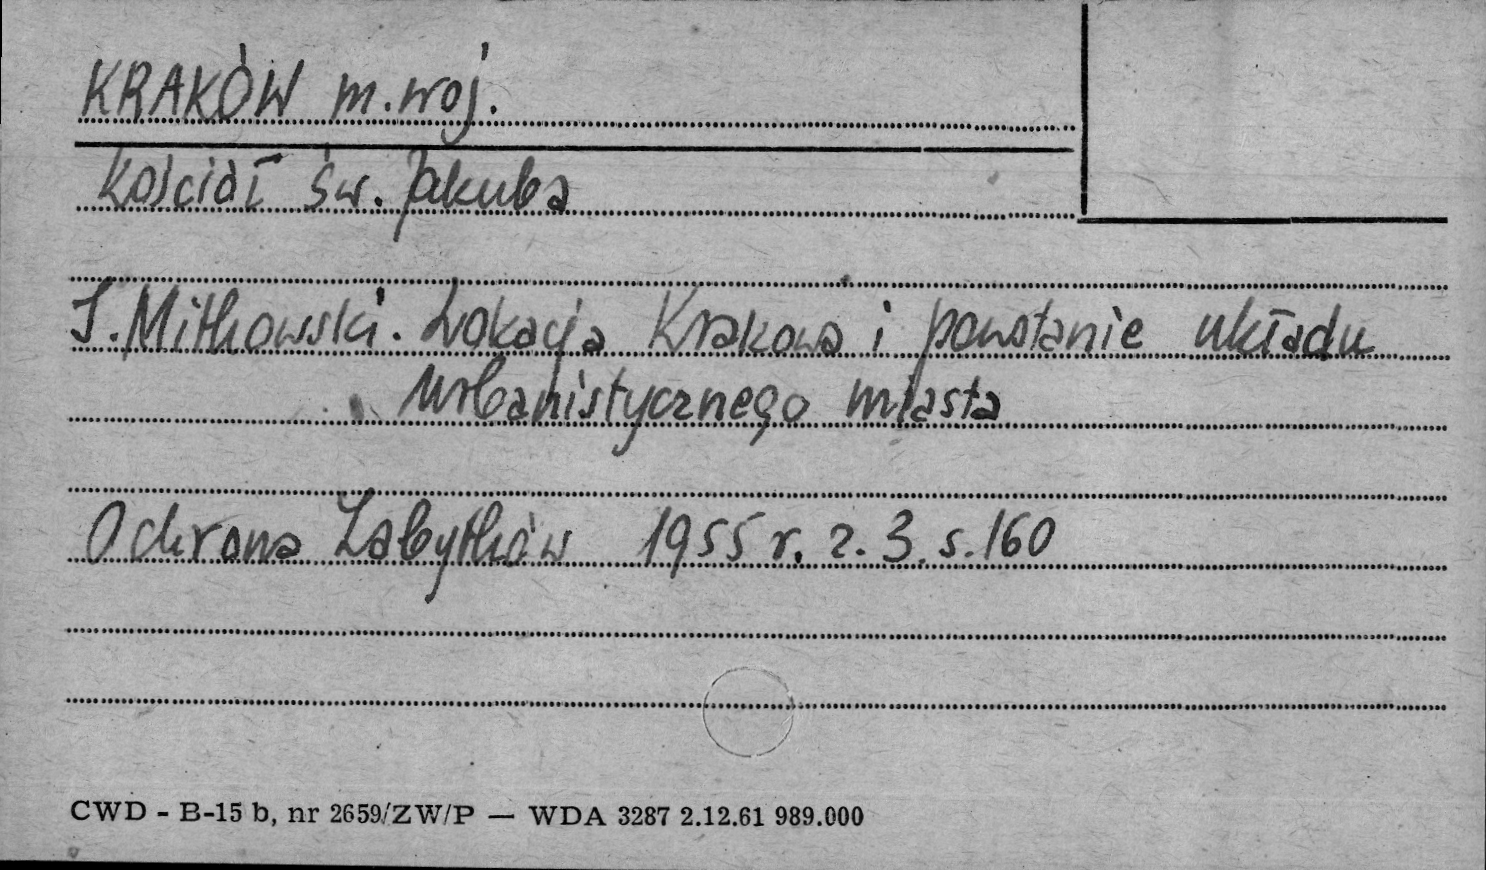 KRAKÓW m. woj.
Kościół św. Jakuba
J. Mitkowski. Lokacja Krakowa i powstanie układu
urbanistycznego miasta
Ochrona Zabytków 1955 r. z. 3. s. 160
CWD - B-15 b, nr 2659/ZW/P — WDA 3287 2.12.61 989.000